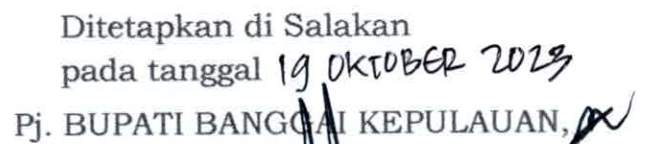 Ditetapkan di Salakan
pada tanggal 19 OKTOBER 2023
Pj. BUPATI BANGGAI KEPULAUAN,